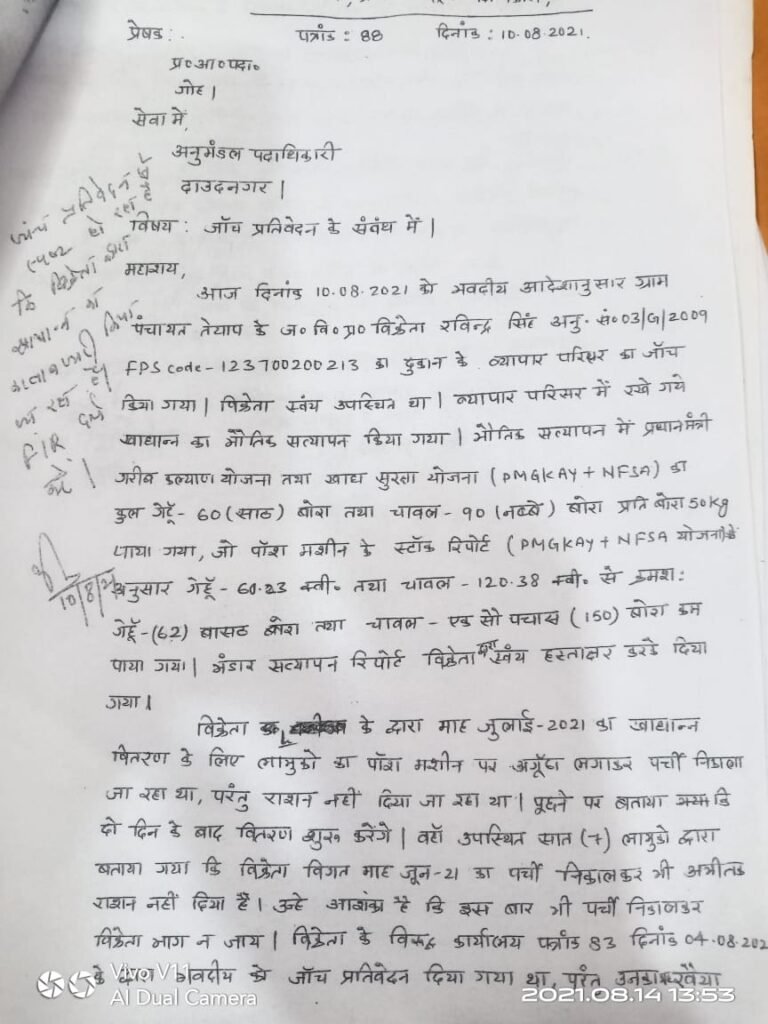 प्रेषक :   पत्रांक : 88   दिनांक : 10.08.2021.
प्र०आ०पदा०
गोह।
सेवा में,
अनुमंडल पदाधिकारी
दाउदनगर।
विषय : जाँच प्रतिवेदन के संबंध में।
महाशय,
आज दिनांक 10.08.2021 को भवदीय आदेशानुसार ग्राम
पंचायत तेयाप के ज० वि० प्र० विक्रेता रविन्द्र सिंह अनु. सं० 03/G/2009
FPS code - 123700200213 का दुकान के व्यापार परिसर का जाँच
किया गया। विक्रेता स्वंय उपस्थित था। व्यापार परिसर में रखे गये
खाद्यान्न का भौतिक सत्यापन किया गया। भौतिक सत्यापन में प्रधानमंत्री
गरीब कल्याण योजना तथा खाद्य सुरक्षा योजना (PMGKAY + NFSA) का
कुल गेहूँ - 60 (साठ) बोरा तथा चावल - 90 (नब्बे) बोरा प्रति बोरा 50 Kg
पाया गया, जो पॉश मशीन के स्टॉक रिपोर्ट (PMGKAY + NFSA योजना) के
अनुसार गेहूँ - 60.23 क्वी० तथा चावल - 120.38 क्वी० से क्रमश:
गेहूँ - (62) बासठ बोरा तथा चावल - एक सौ पचास (150) बोरा कम
पाया गया। भंडार सत्यापन रिपोर्ट विक्रेता द्वारा स्वंय हस्ताक्षर करके दिया
गया।
विक्रेता के द्वारा माह जुलाई-2021 का खाद्यान्न
वितरण के लिए लाभुको का पॉश मशीन पर अगूँठा लगाकर पर्ची निकाला
जा रहा था, परंतु राशन नहीं दिया जा रहा था। पूछने पर बताया कि
दो दिन के बाद वितरण शुरू करेंगे। वहाँ उपस्थित सात (7) लाभुको द्वारा
बताया गया कि विक्रेता विगत माह जून-21 का पर्ची निकालकर भी अभीतक
राशन नहीं दिया है। उन्हे आशंका है कि इस बार भी पर्ची निकालकर
विक्रेता भाग न जाय। विक्रेता के विरूद्ध कार्यालय पत्रांक 83 दिनांक 04.08.202
के द्वारा भवदीय को जाँच प्रतिवेदन दिया गया था, परंतु उनका रवैया
जांच प्रतिवेदन से
स्पष्ट हो रहा है
कि विक्रेता द्वारा
खाद्यान्न का
कालाबाजारी किया
जा रहा है।
FIR दर्ज
करें।
10/8/21
Vivo V11
AI Dual Camera
2021.08.14 13:53